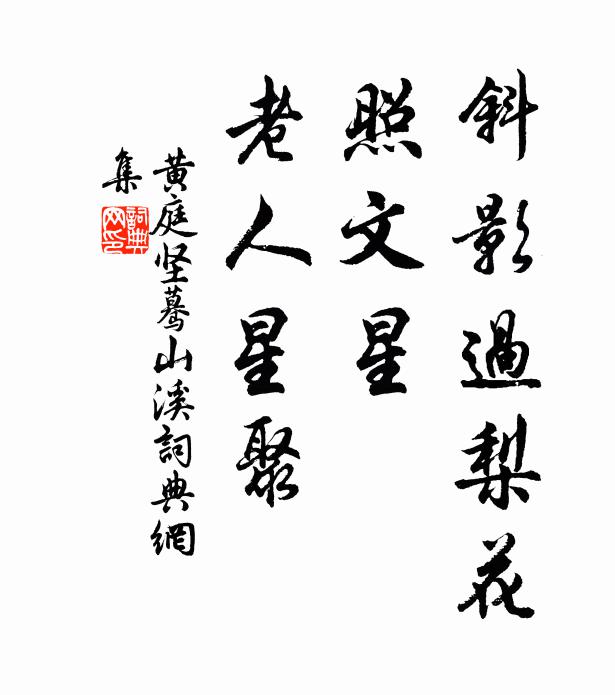 斜影過梨花
照文星
老人星聚
黄庭坚蓦山溪詞典網
集
詞典
网印